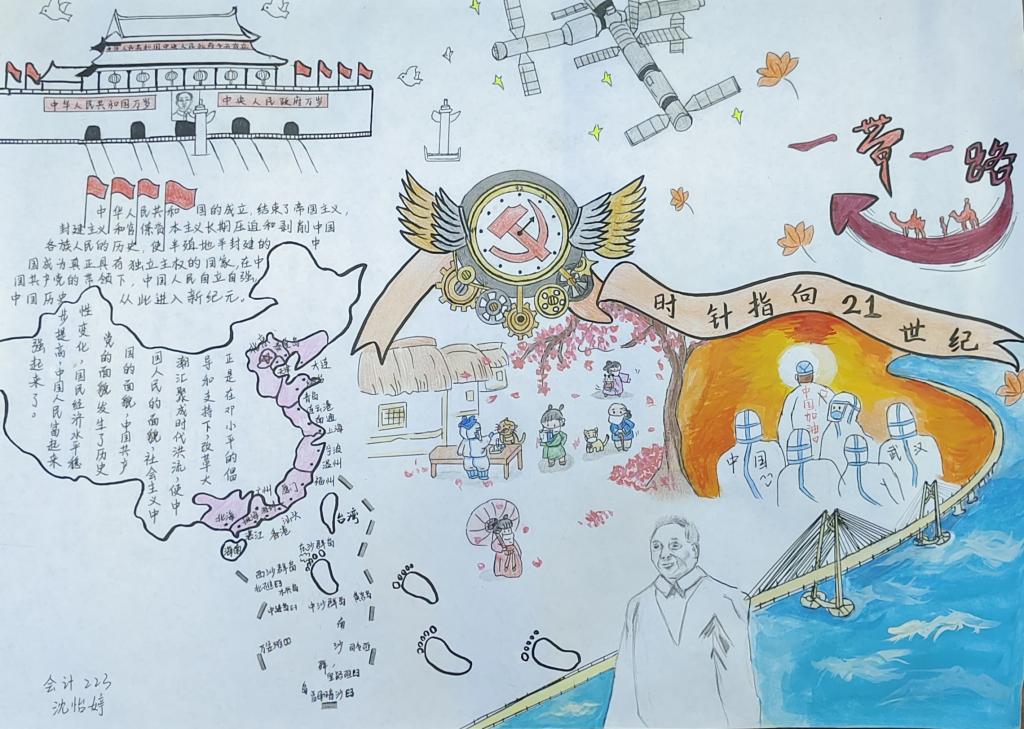 中华人民共和国中央人民政府今天成立
中华人民共和国万岁
中央人民政府万岁
中华人民共和国的成立，结束了帝国主义，
封建主义和官僚资本主义长期压迫和剥削中国
各族人民的历史，使半殖地半封建的中
国成为真正具有独立主权的国家，在中
国共产党的带领下，中国人民自立自强，
中国历史从此进入新纪元。
正是在邓小平的倡
导和支持下，改革大
潮汇聚成时代洪流，使中
国人民的面貌，社会主义中
国的面貌，中国共产
党的面貌发生了历史
性变化。国民经济水平稳
步提高，中国人民富起来
强起来了。
北京
秦皇岛
天津
大连
烟台
青岛
连云港
南通
上海
宁波
温州
福州
广州
厦门
北海
珠海
深圳
汕头
湛江
香港
海南
台湾
东沙群岛
西沙群岛
永兴岛
中沙群岛
黄岩岛
南
沙
群
岛
曾母暗沙
一带一路
时针指向21世纪
中国加油
中国
武汉
会计223
沈怡婷